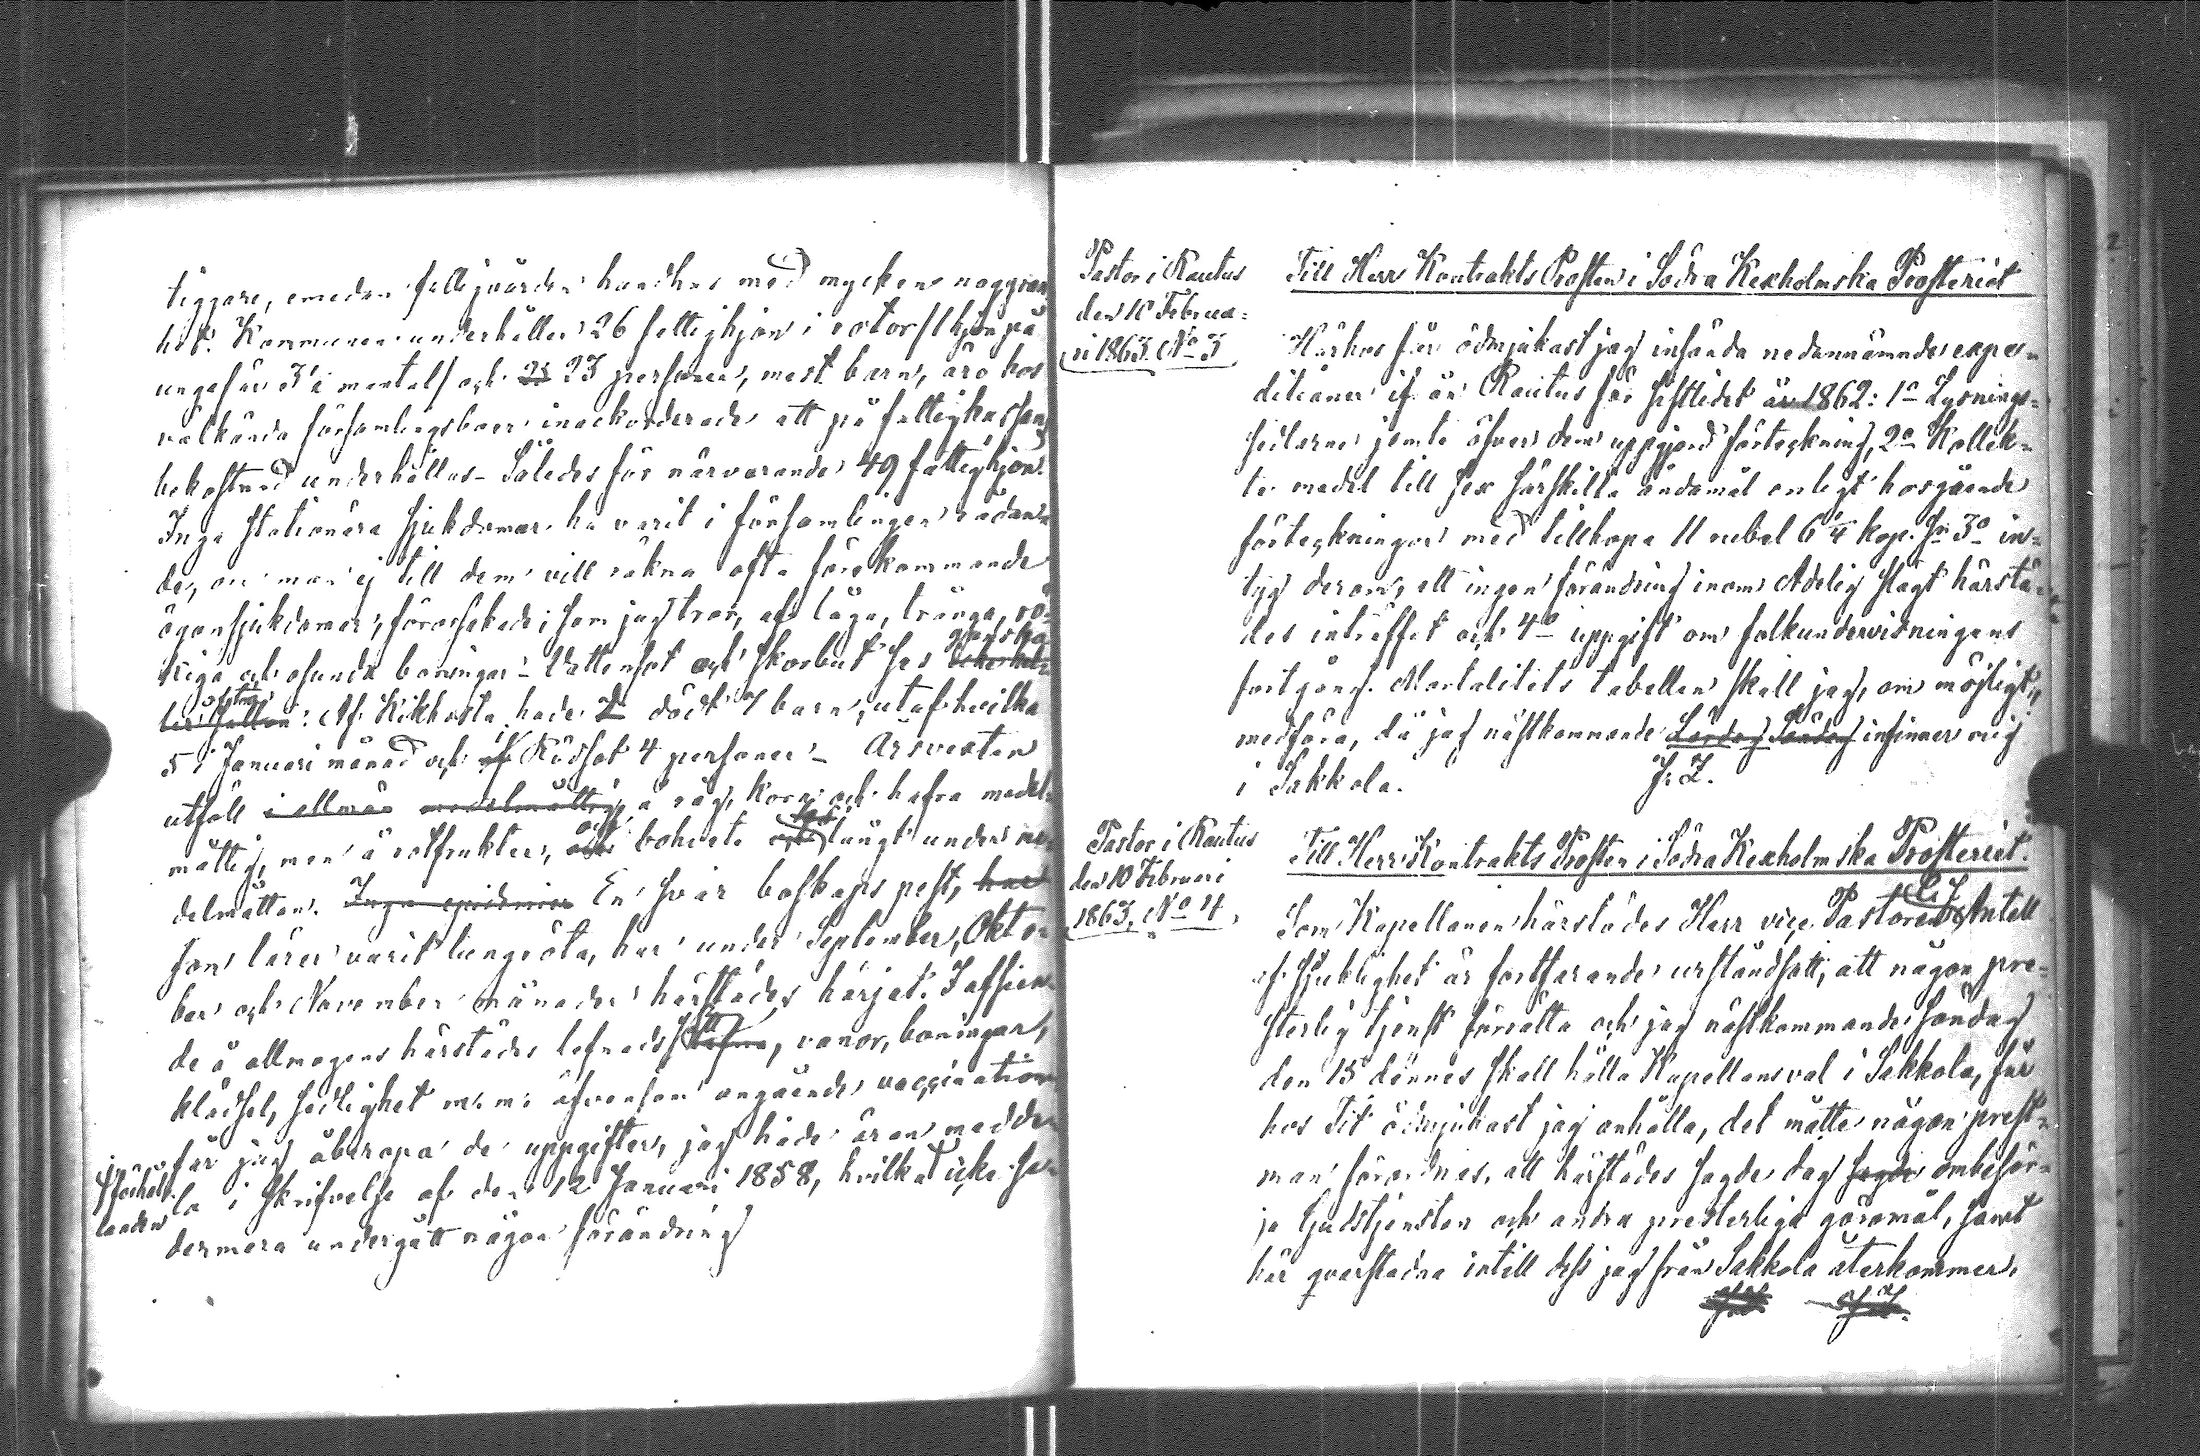 tiggare, emedan fattigvården handhas med mycken noggran
het. Kommunen underhåller 26 fattighjon i rotor / 1 hjon på
ungefär 3 i mantal / och 23 23 personer, mest barn, äro hos
välkända församlingsboer inackorderade att på fattigkassans
bekostnad underhållas – Således för närvarande 49 fattighjon.
Inga stationära sjukdomar ha varit i församlingen rådan-
de, om man ej till dem vill räkna ofta förekommande
ögonsjukdomar, förorsakade, som jag tror, af låga, trånga, rö-
kiga och osunda boningar – Vattensot och skorbut ses ganska
ofta: Af Kikhosta hade dödt 7 barn, utaf hvilka
5 i Januari månad och i Rödsot 4 personer – Årsvexten
utföll i allmän medelmåttig, å råg, korn och hafra medel-
måttig, men å rotfrukter, och bohvete långt under me-
delmåttan. Inga epidemier En svår boskapspest, har
som lärer varit lungröta, har under September, Okto-
ber och November månader härstädes härjat. I afseen-
de å allmogens härstädes lefnadssätt, vanor, boningar,
klädsel, sedlighet m. m. äfvensom angående vaccination
får jag åberopa de uppgifter, jag hade äran medde-
la i skrifvelse af den 12 Januari 1858, hvilka icke se-
förhål-
landen
dermera undergått någon förändring
Pastor i Rautus
den 10 Februa-
ri 1863. No 3
Till Herr Kontrakts Prosten i Södra Kexholmska Prosteriet
Härhos får ödmjukast jag insända nedannämnda expe-
ditioner ifrån Rautus för sistlidet år 1862: 1o Lysnings-
sedlarne jemte öfver dem uppgjord förteckning, 2o Kollek-
te medel till sex särskilta ändamål enligt hosgående
förteckningar med tillhopa 11 rubel 6 1/4 kop. Sr 3o in-
tyg derom, att ingen förändring inom Adelig slägt härstä-
des inträffat och 4o uppgift om folkundervisningens
fortgång. Mortalitets tabellen skall jag, om möjligt,
medföra, då jag nästkommande Lördag Söndag infinner mig
i Sakkola. J. L.
Pastor i Rautus
den 10 Februari
1863, No 4.
Till Herr Kontrakts Prosten i Södra Kexholmska Prosteriet.
Som Kapellanen härstädes Herr vice Pastoren Antell
af sjuklighet är fortfarande urståndsatt, att någon pre-
sterlig tjenst förrätta och jag nästkommande Söndag
den 15 dennes skall hålla Kapellansval i Sakkola, får
hos Tit ödmjukast jag anhålla, det måtte någon prest-
man förordnas, att härstädes sagde dag sagde ombesör-
ja Gudstjensten och andra presterliga göromål, samt
här qvarstadna intill dess jag från Sakkola återkommer.